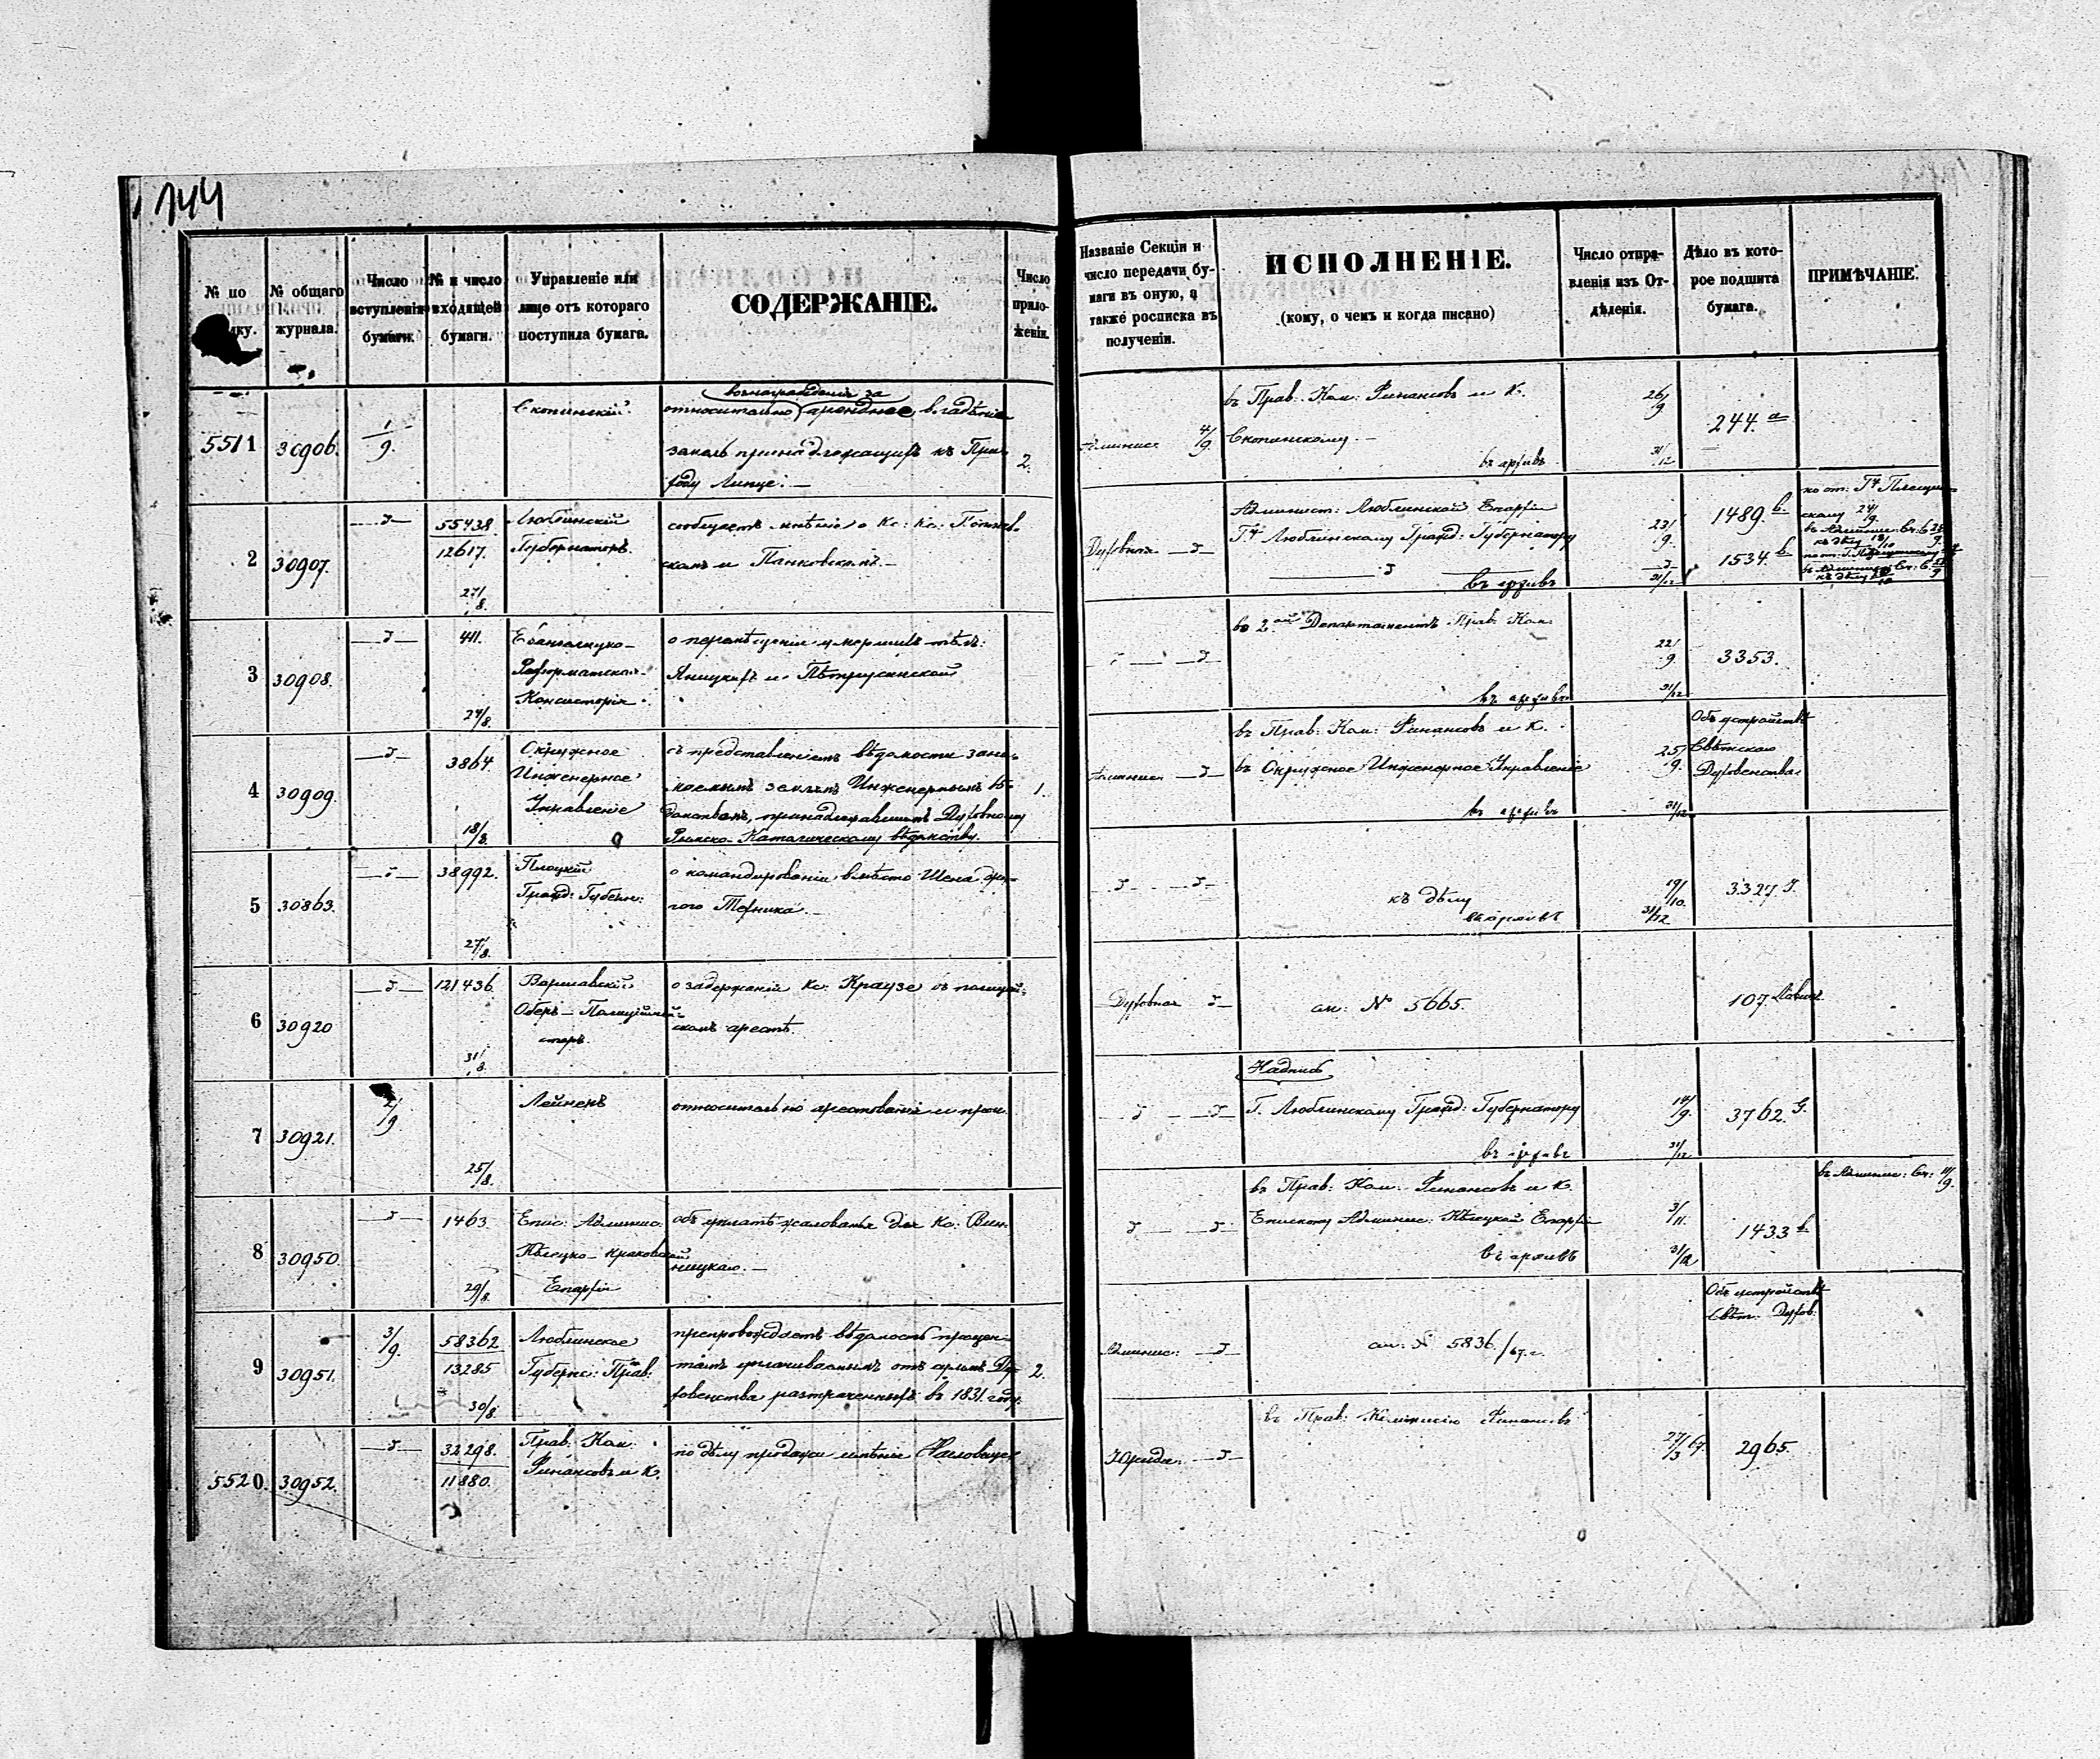 144
№ по
ку.
№ общаго
журнала.
Число
вступленія
бумаги.
№ и число
входящей
бумаги.
Управленіе или
лице отъ котораго
поступила бумага.
СОДЕРЖАНІЕ.
Число
прило-
женій.
Названіе Секціи и
число передачи бу-
маги въ оную, а
также росписка въ
полученіи.
ИСПОЛНЕНІЕ.
(кому, о чемъ и когда писано)
Число отпра-
вленія изъ От-
дѣленія.
Дѣло въ кото-
рое подшита
бумага.
ПРИМѢЧАНІЕ.
5511
30906.
1/9.
Скопинскій.
вознагражденія за
относительно арендное владѣніе
земель принадлежащихъ къ При-
ходу Липце.—
2.
Админис. 4/9
въ Прав: Ком: Финансовъ и К.
Скопинскому.—
въ архивъ
26/9
31/12
244. а
2
30907.
—д—
55438.
12617.
27/8.
Люблинскій
Губернаторъ.
сообщаетъ мнѣніе о Кс: Кс:
скомъ и Панковскомъ.—
Духовная —д—
Админист: Люблинской Епархіи
Гну Люблинскому Гражд: Губернатору
—д
въ архивъ
23/9.
—д—
31/12
1489. b.
1534. b
3
30908.
—д—
411.
24/8.
Евангелицко-
Реформатская
Консисторія.
о перемѣщеніи умершихъ тѣлъ:
Яницкихъ и Пѣтрусинской
—д
во 2ой Департаментъ Прав: Ком:
въ архивъ
22/9
31/12
3353.
4
30909.
—д—
3864.
18/8.
Окружное
Инженерное
Управленіе
съ представленіемъ вѣдомости зани-
маемымъ землямъ Инженернымъ Вѣ-
домствомъ, принадлежавшимъ Духовному
Римско-Католическому вѣдомству.
1.
Админис. —д—
въ Прав: Ком: Финансовъ и К.
въ Окружное Инженерное Управленіе
въ архивъ
25/9.
31/12
Объ устройствѣ
Свѣтскаго
Духовенства
5
30863.
—д—
38992.
27/8.
Плоцкій
Гражд: Губерн:
о командированіи вмѣсто Шена дру-
гого Техника.—
—д— —д—
къ дѣлу
въ архивъ
19/10.
31/12
3327
6
30920
—д—
121436.
31/8.
Варшавскій
Оберъ-Полицій-
мейстеръ.
о задержаніи Кс: Краузе въ полицей-
скомъ арестѣ.
Духовная —д—
см: № 5665.
107
7
30921.
2/9
25/8.
относительно арестованія и проч.
—д— —д—
Надпись
Г. Люблинскому Гражд: Губернатору
въ архивъ
14/9.
31/12
3762. G.
8
30950.
—д—
1463.
29/8.
Епис: Админис:
Кѣлецко-Краковской
Епархіи
объ уплатѣ жалованья для Кс: Вин-
ницкаго.—
—д— —д—
въ Прав: Ком: Финансовъ и К.
Епископу Админис: Кѣлецкой Епархіи
въ архивъ
3/11.
31/12
1433 b
въ Админис: Сек: 11/9.
9
30951.
3/9.
58362
13285
30/8.
Люблинское
Губернс: Прав:
препровождаетъ вѣдомость процен-
тамъ уплачиваемымъ отъ суммъ Ду-
ховенства растраченныхъ въ 1831 году.
2.
Админис: —д—
см: № 5836/67.
Объ устройствѣ
Свѣт: Духов:
5520.
30952.
—д—
32298.
11880.
Прав: Ком:
Финансовъ и К.
по дѣлу продажи имѣнія
Юрид: —д—
въ Прав: Коммисію Финансовъ
27/3 67
2965.